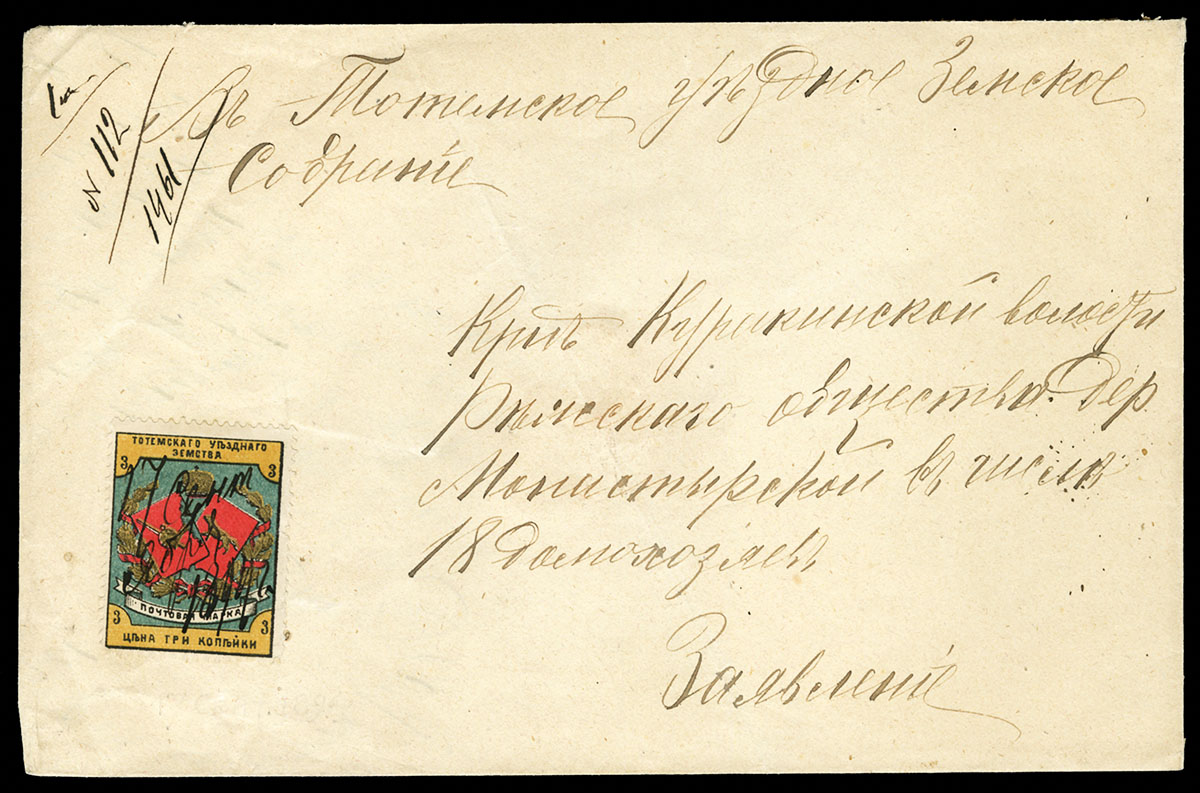 N 112
1461
Въ Тотемское уѣздное Земское
Собрание
Крнъ Куракинской волости
общества дер.
Монастырской въ числѣ
18 домохозяевъ
Заявление
ТОТЕМСКАГО УѢЗДНАГО
ЗЕМСТВА
3 3
17 Сент
ПОЧТОВАЯ МАРКА
3 3
ЦѢНА ТРИ КОПѢЙКИ